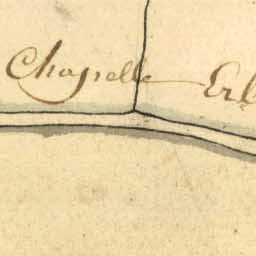 Chapelle Erl